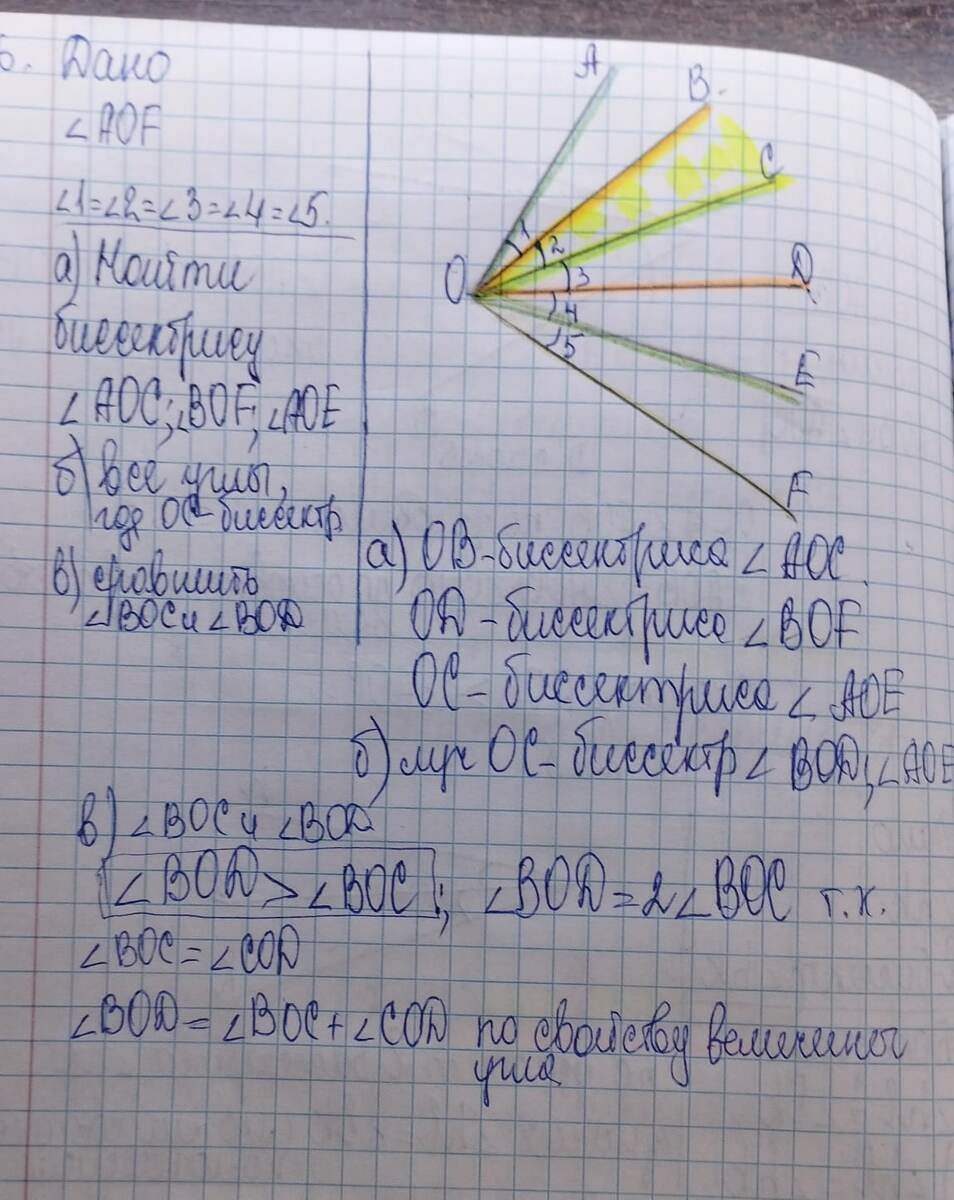 6. Дано
∠AOF
∠1=∠2=∠3=∠4=∠5.
а) Найти
биссектрису
∠AOC; ∠BOF; ∠AOE
б) все углы,
где OC-биссектр
в) сравнить
∠BOC и ∠BOD
A
B
C
O
D
E
F
1
2
3
4
5
а) OB-биссектриса ∠AOC.
OD-биссектриса ∠BOF
OC-биссектриса ∠AOE
б) луч OC-биссектр ∠BOD, ∠AOE
в) ∠BOC и ∠BOD
∠BOD > ∠BOC; ∠BOD = 2∠BOC т.к.
∠BOC = ∠COD
∠BOD = ∠BOC + ∠COD по свойству величины
угла